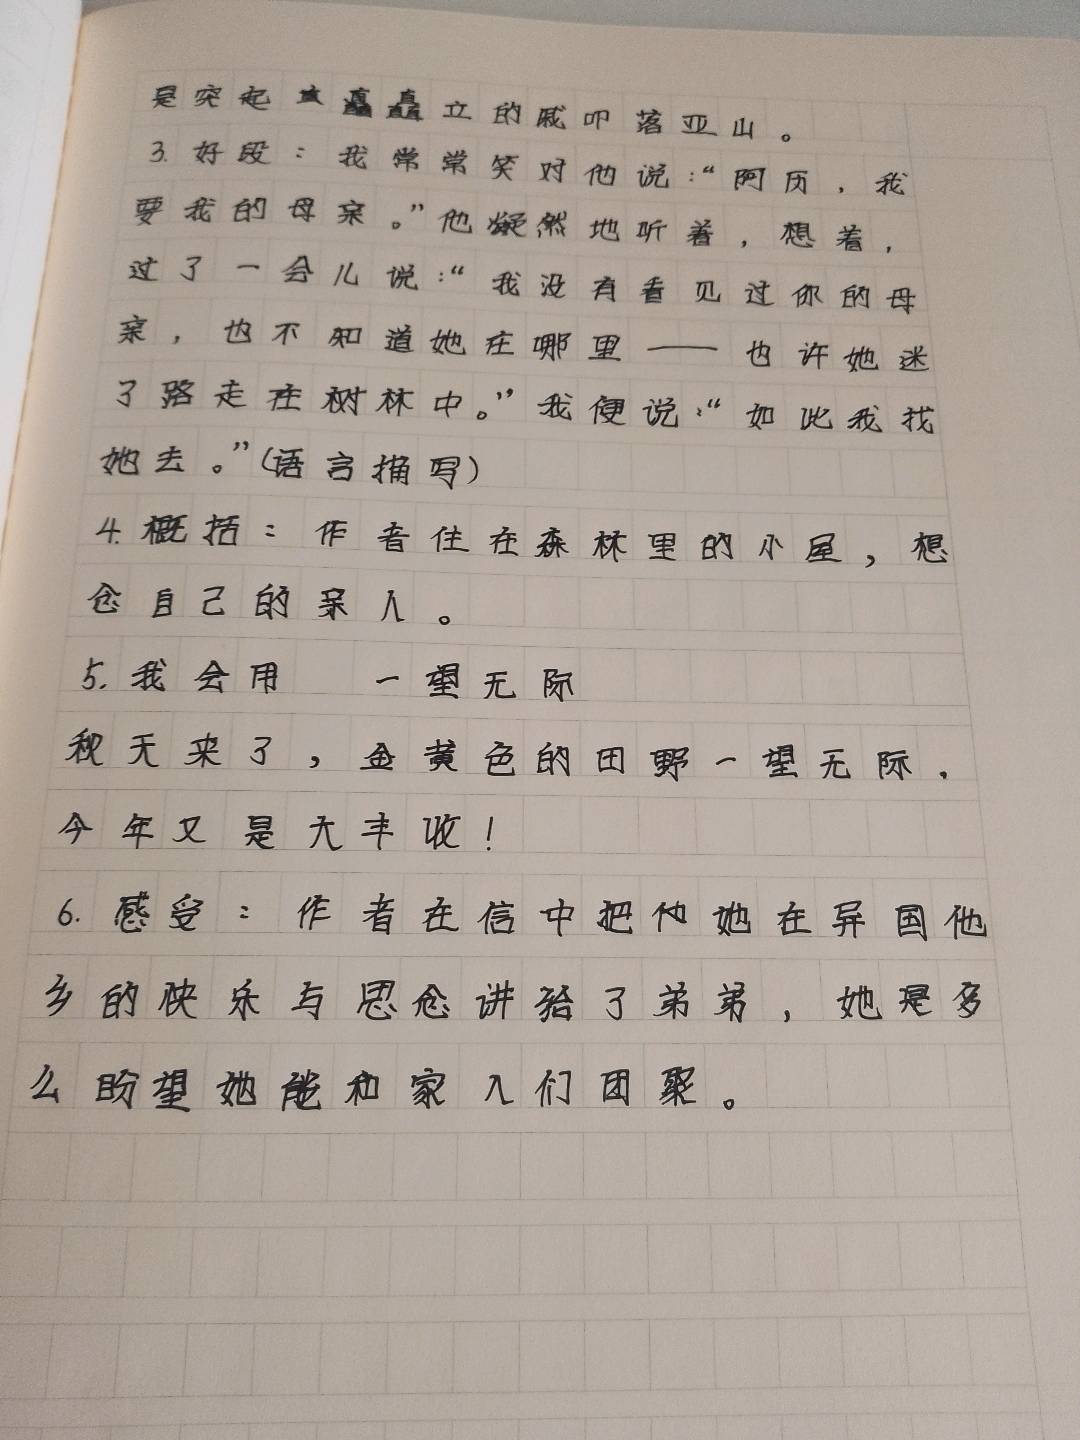 是突起矗立的戚叩落亚山。
3.好段：我常常笑对他说：“阿历，我
要我的母亲。”他凝然地听着，想着，
过了一会儿说：“我没有看见过你的母
亲，也不知道她在哪里——也许她迷
了路走在树林中。”我便说：“如此我找
她去。”（语言描写）
4.概括：作者住在森林里的小屋，想
念自己的亲人。
5.我会用 一望无际
秋天来了，金黄色的田野一望无际，
今年又是大丰收！
6.感受：作者在信中把她在异国他
乡的快乐与思念讲给了弟弟，她是多
么盼望她能和家人们团聚。